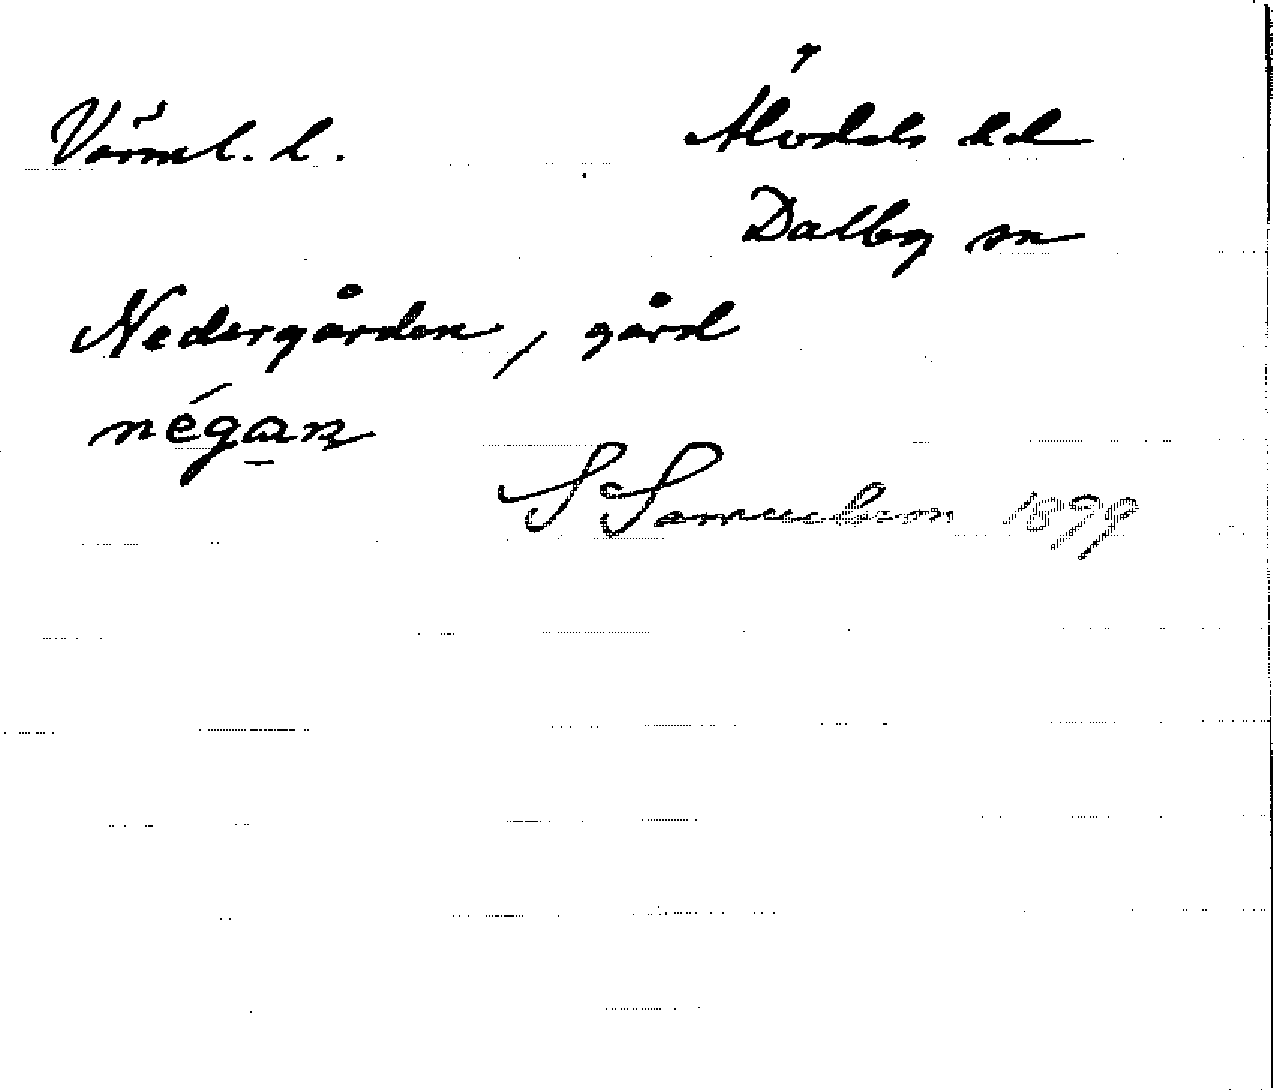 Värml. l. Älvdals hd
Dalby sn
Nedergården, gård
négan
S Samuelsson 1898